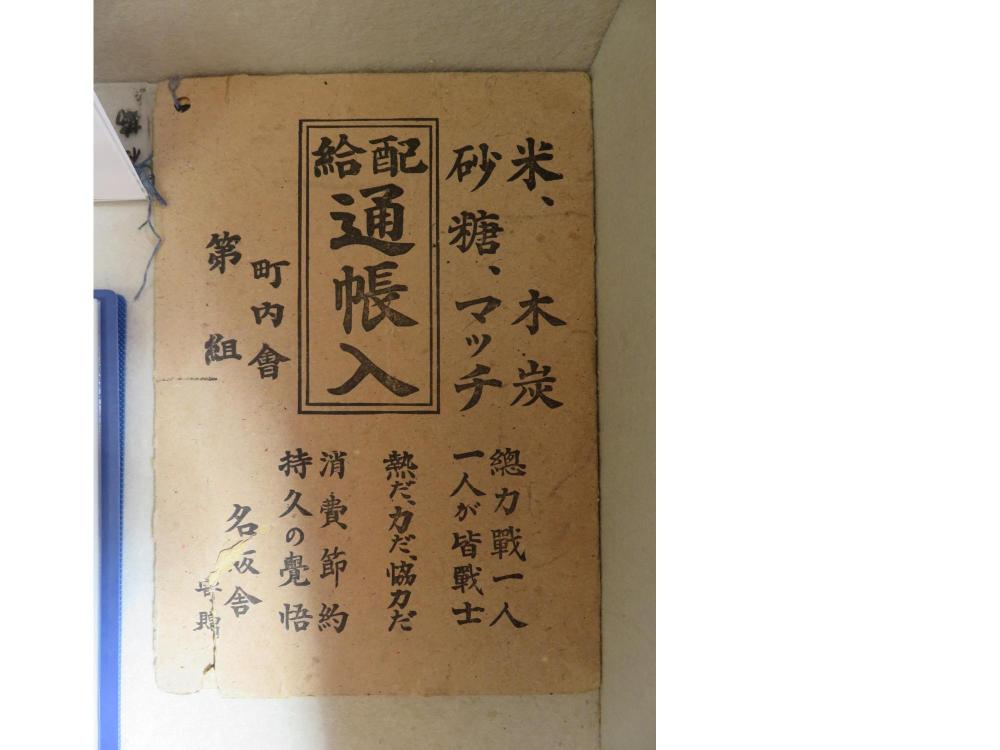 米、木炭
砂糖、マッチ
配給
通帳入
町内會
第　組
總力戰一人
一人が皆戰士
熱だ、力だ、協力だ
消費節約
持久の覺悟
名坂舎
寄贈